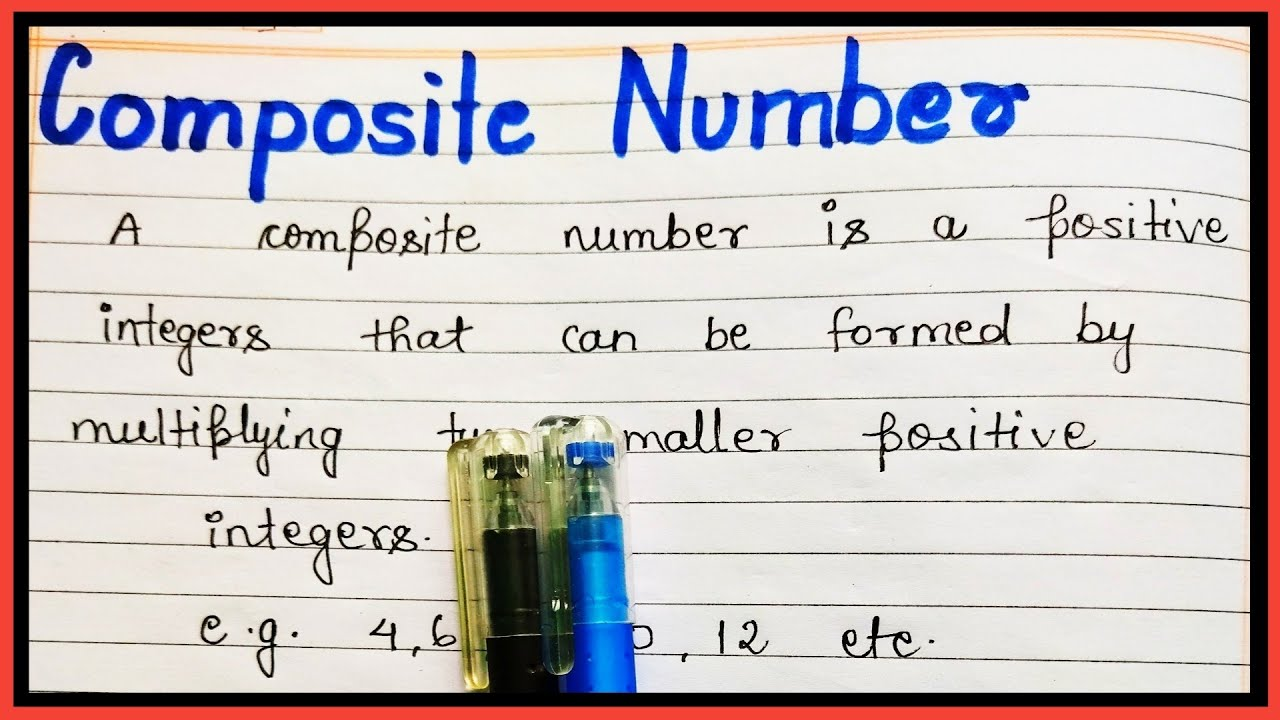 Composite Number
A composite number is a positive
integers that can be formed by
multiplying positive
integers.
e.g. 4, 6 , 12 etc.